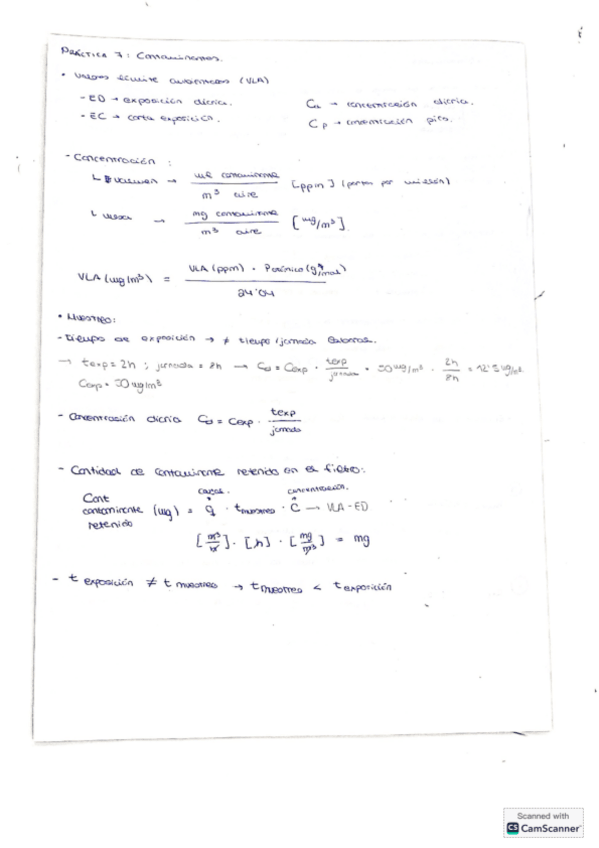 PRÁCTICA 7: Contaminantes.
• Valores límite ambientales (VLA)
- ED → exposición diaria.
Cd → concentración diaria.
- EC → corta exposición.
Cp → concentración pico.
- Concentración:
↳ volumen → mL contaminante / m³ aire [ppm] (partes por millón)
↳ masa → mg contaminante / m³ aire [mg/m³]
VLA (mg/m³) = VLA (ppm) · Patómico (g/mol) / 24'04
• MUESTREO:
- Tiempo de exposición → ≠ tiempo/jornada laboral.
→ texp = 2h ; jornada = 8h → Cd = Cexp · texp / jornada = 50 mg/m³ · 2h / 8h = 12'5 mg/m³
Cexp = 50 mg/m³
- Concentración diaria Cd = Cexp · texp / jornada
- Cantidad de contaminante retenido en el filtro:
Cant contaminante retenido (mg) = q · tmuestreo · C → VLA-ED
caudal. concentración.
[m³/h] · [h] · [mg/m³] = mg
- t exposición ≠ t muestreo → tmuestreo < t exposición
Scanned with
CS CamScanner